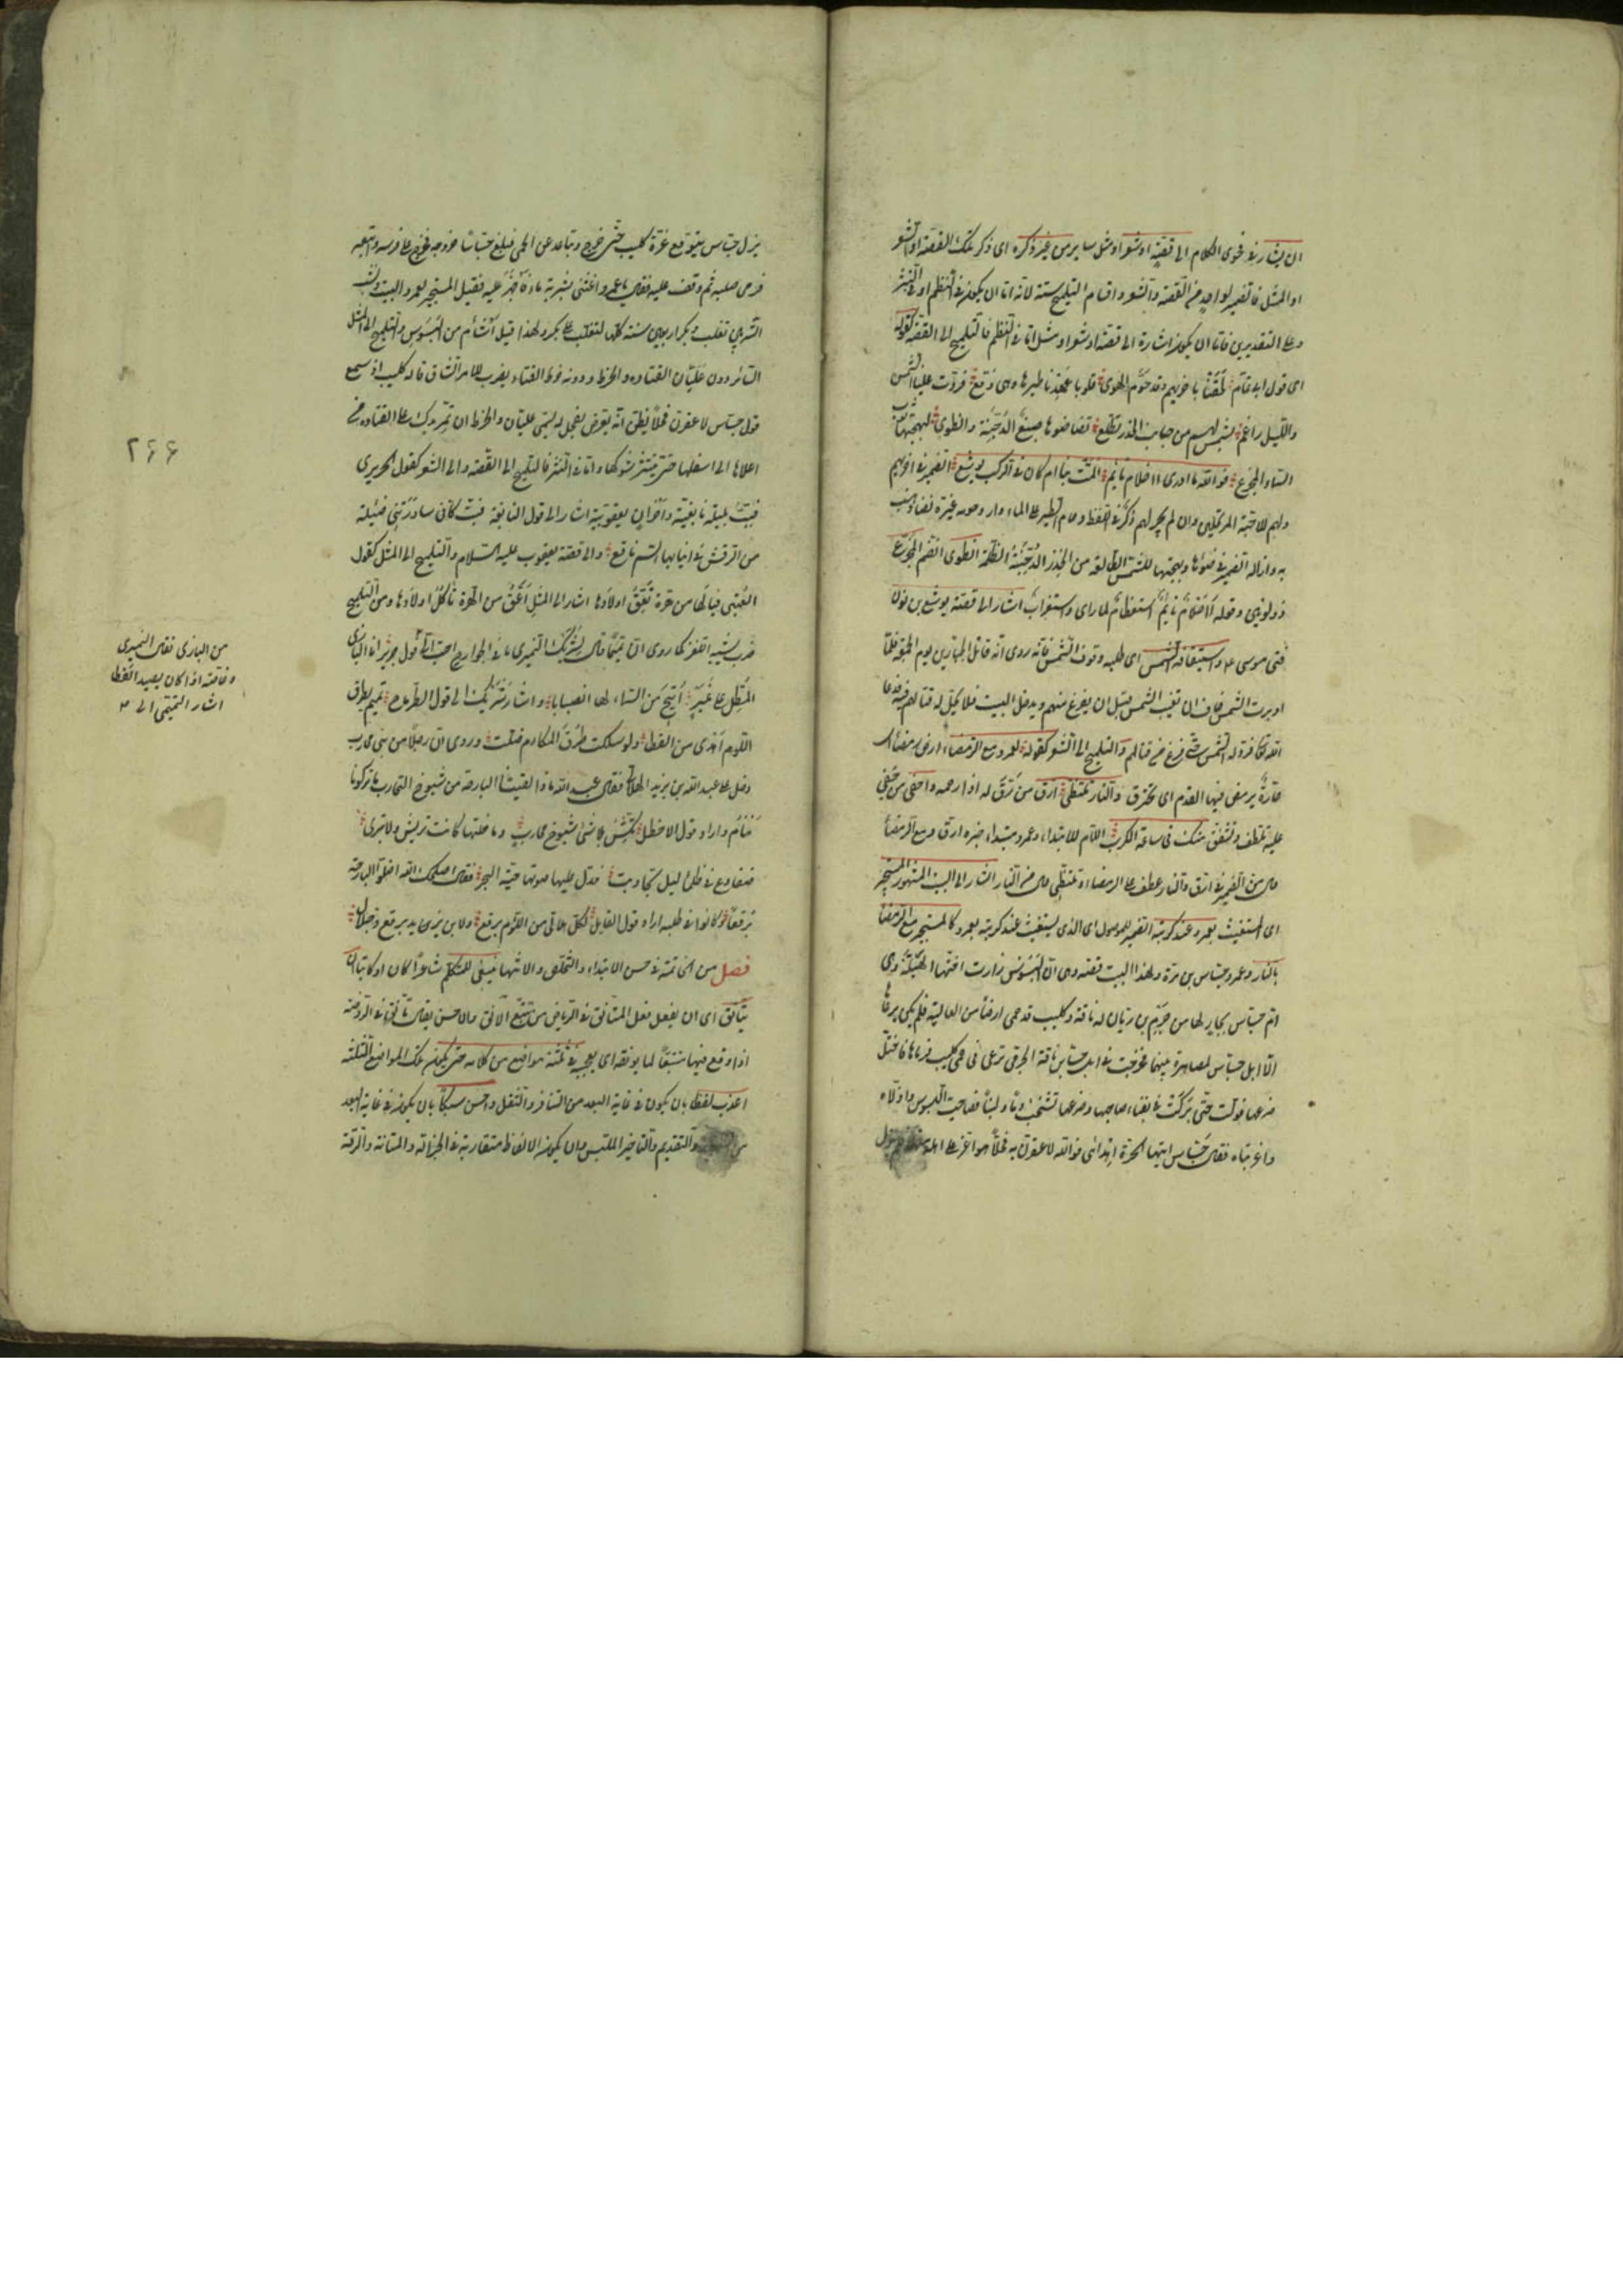 ان يشار في فحوى الكلام الى قصة او شعر او مثل سائر من غير ذكره اى ذكر تلك القصة او الشعر
او المثل فالضمير لواحد من القصة والشعر واقسام التلميح ستة لانه اما ان يكون في النظم او في النثر
وعلى التقديرين فاما ان يكون اشارة الى قصة او شعر او مثل اما في النظم فالتلميح الى القصة كقوله
اى قول ابى تمام لحقنا باخريهم وقد حوم الهوى قلوبا عهدنا طيرها وهى وقع فردت علينا الشمس
والليل راغم بشمس لهم من جانب الخدر تطلع نضا ضوءها صبغ الدجنة وانطوى لبهجتها ثوب
السماء المجزع فوالله ما ادرى أاحلام نائم المت بنا ام كان في الركب يوشع الضمير في اخريهم
ولهم للاحبة المرتحلين وان لم يجر لهم ذكر في اللفظ وحام الطير على الماء دار وحومه غيره نضا ذهب
به وازاله الضمير في ضوءها وبهجتها للشمس الطالعة من الخدر الدجنة الظلمة انطوى انضم المجزع
ذو لونين وقوله أأحلام نائم استعظام لما راى واستغراب اشار الى قصة يوشع بن نون
فتى موسى ع م واستيقافه الشمس اى طلبه وقوف الشمس فانه روى انه قاتل الجبارين يوم الجمعة فلما
ادبرت الشمس خاف ان تغيب الشمس قبل ان يفرغ منهم ويدخل السبت فلا يحل له قتالهم فيه فدعا
الله تعالى فرد له الشمس حتى فرغ من قتالهم والتلميح الى الشعر كقوله لعمرو مع الرمضاء ارض رمضاء اى
حارة يرمض فيها القدم اى يحترق والنار تلتظى ارق من رق له اذا رحمه واحفى من حفى
عليه تلطف وتشفق منك في ساعة الكرب اللام للابتداء وعمرو مبتداء خبره ارق ومع الرمضاء
حال من الضمير في ارق والنار عطف على الرمضاء وتلتظى حال من النار اشار الى البيت المشهور المستجير
اى المستغيث بعمرو عند كربته الضمير للموصول اى الذى يستغيث عند كربته بعمرو كالمستجير من الرمضاء
بالنار وعمرو جساس بن مرة ولهذا البيت قصة وهى ان البسوس زارت اختها الهيلة وهى
ام جساس بجار لها من جرم بن ريان له ناقة وكليب قد حمى ارضا من العالية فلم يكن يرعاها
الا ابل جساس لمصاهرة بينهما فخرجت في ابل جساس ناقة الجرمى ترعى في حمى كليب فرماها فاختل
ضرعها فولت حتى بركت بفناء صاحبها وضرعها تشخب دما ولبنا فصاحت البسوس واذلاه
واغربتاه فقال جساس ايتها الحرة اهدائى فوالله لاعقرن به فحلا هو اعز على اهله منها فلم يزل
يزل جساس يتوقع غرة كليب حتى خرج وتباعد عن الحى فبلغ جساسا خروجه فخرج على فرسه واتبعه
فرمى صلبه ثم وقف عليه فقال يا عمرو اغثنى بشربة ماء فاجهز عليه فقيل المستجير بعمرو البيت ونشب
الشر بين تغلب وبكر اربعين سنة كلها لتغلب على بكر ولهذا قيل اشأم من البسوس والتلميح الى المثل
السائر دون عليان القتادة والخرط ودونه خرط القتاد يضرب للامر الشاق قاله كليب اذ سمع
قول جساس لاعقرن فحلا فظن انه يعرض بفحل له يسمى عليان والخرط ان تمر يدك على القتادة من
اعلاها الى اسفلها حتى ينتثر شوكها واما في النثر فالتلميح الى القصة والى الشعر كقول الحريرى
فبت بليلة نابغية واحزان يعقوبية اشار الى قول النابغة فبت كانى ساورتنى ضئيلة
من الرقش في انيابها السم ناقع والى قصة يعقوب عليه السلام والتلميح الى المثل كقول
العتبى فيالها من هرة تعق اولادها اشار الى المثل اعق من الهرة تاكل اولادها ومن التلميح
ضرب يشبه اللغز كما روى ان تميميا قال لشريك النميرى ما في الجوارح احب الى قول جرير انا البازى
المطل على نمير اتيح من السماء لها انصبابا واشار شريك الى قول الطرماح تميم بطرق
اللوم اهدى من القطا ولو سلكت طرق المكارم ضلت وروى ان رجلا من بنى محارب
دخل على عبد الله بن يزيد الهلالى فقال عبد الله ماذا لقينا البارحة من شيوخ المحارب ما تركونا
ننام واراد قول الاخطل تكش بلا شئ شيوخ محارب وما خلتها كانت تريش ولا تبرى
ضفادع في ظلماء ليل تجاوبت فدل عليها صوتها حية البحر فقال اصلحك الله اضلوا البارحة
برقعا وكانوا في طلبه اراد قول القائل لكل هلالى من اللؤم برقع ولابن يزيد برقع وجلال
فصل من الخاتمة في حسن الابتداء والتخلص والانتهاء ينبغى للمتكلم شاعرا كان او كاتبا ان
يتانق اى ان يفعل فعل المتانق في الرياض من تتبع الآنق والاحسن يقال تانق في الروضة
اذا وقع فيها متتبعا لما يونقه اى يعجبه في ثلثة مواضع من كلامه حتى يكون تلك المواضع الثلثة
اعذب لفظا بان يكون في غاية البعد من التنافر والثقل واحسن سبكا بان يكون في غاية البعد
من والتقديم والتاخير الملتبس وان يكون الالفاظ متقاربة في الجزالة والمتانة والرقة
٢٦٦
من البازى فقال النميرى
وخاصة اذا كان يصيد القطا
اشار التميمى الى